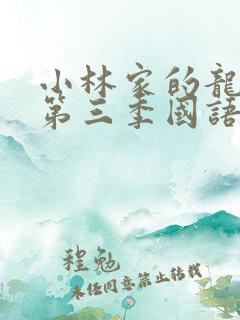 小林家的龍
第三季國語
程勉
未经同意禁止转载